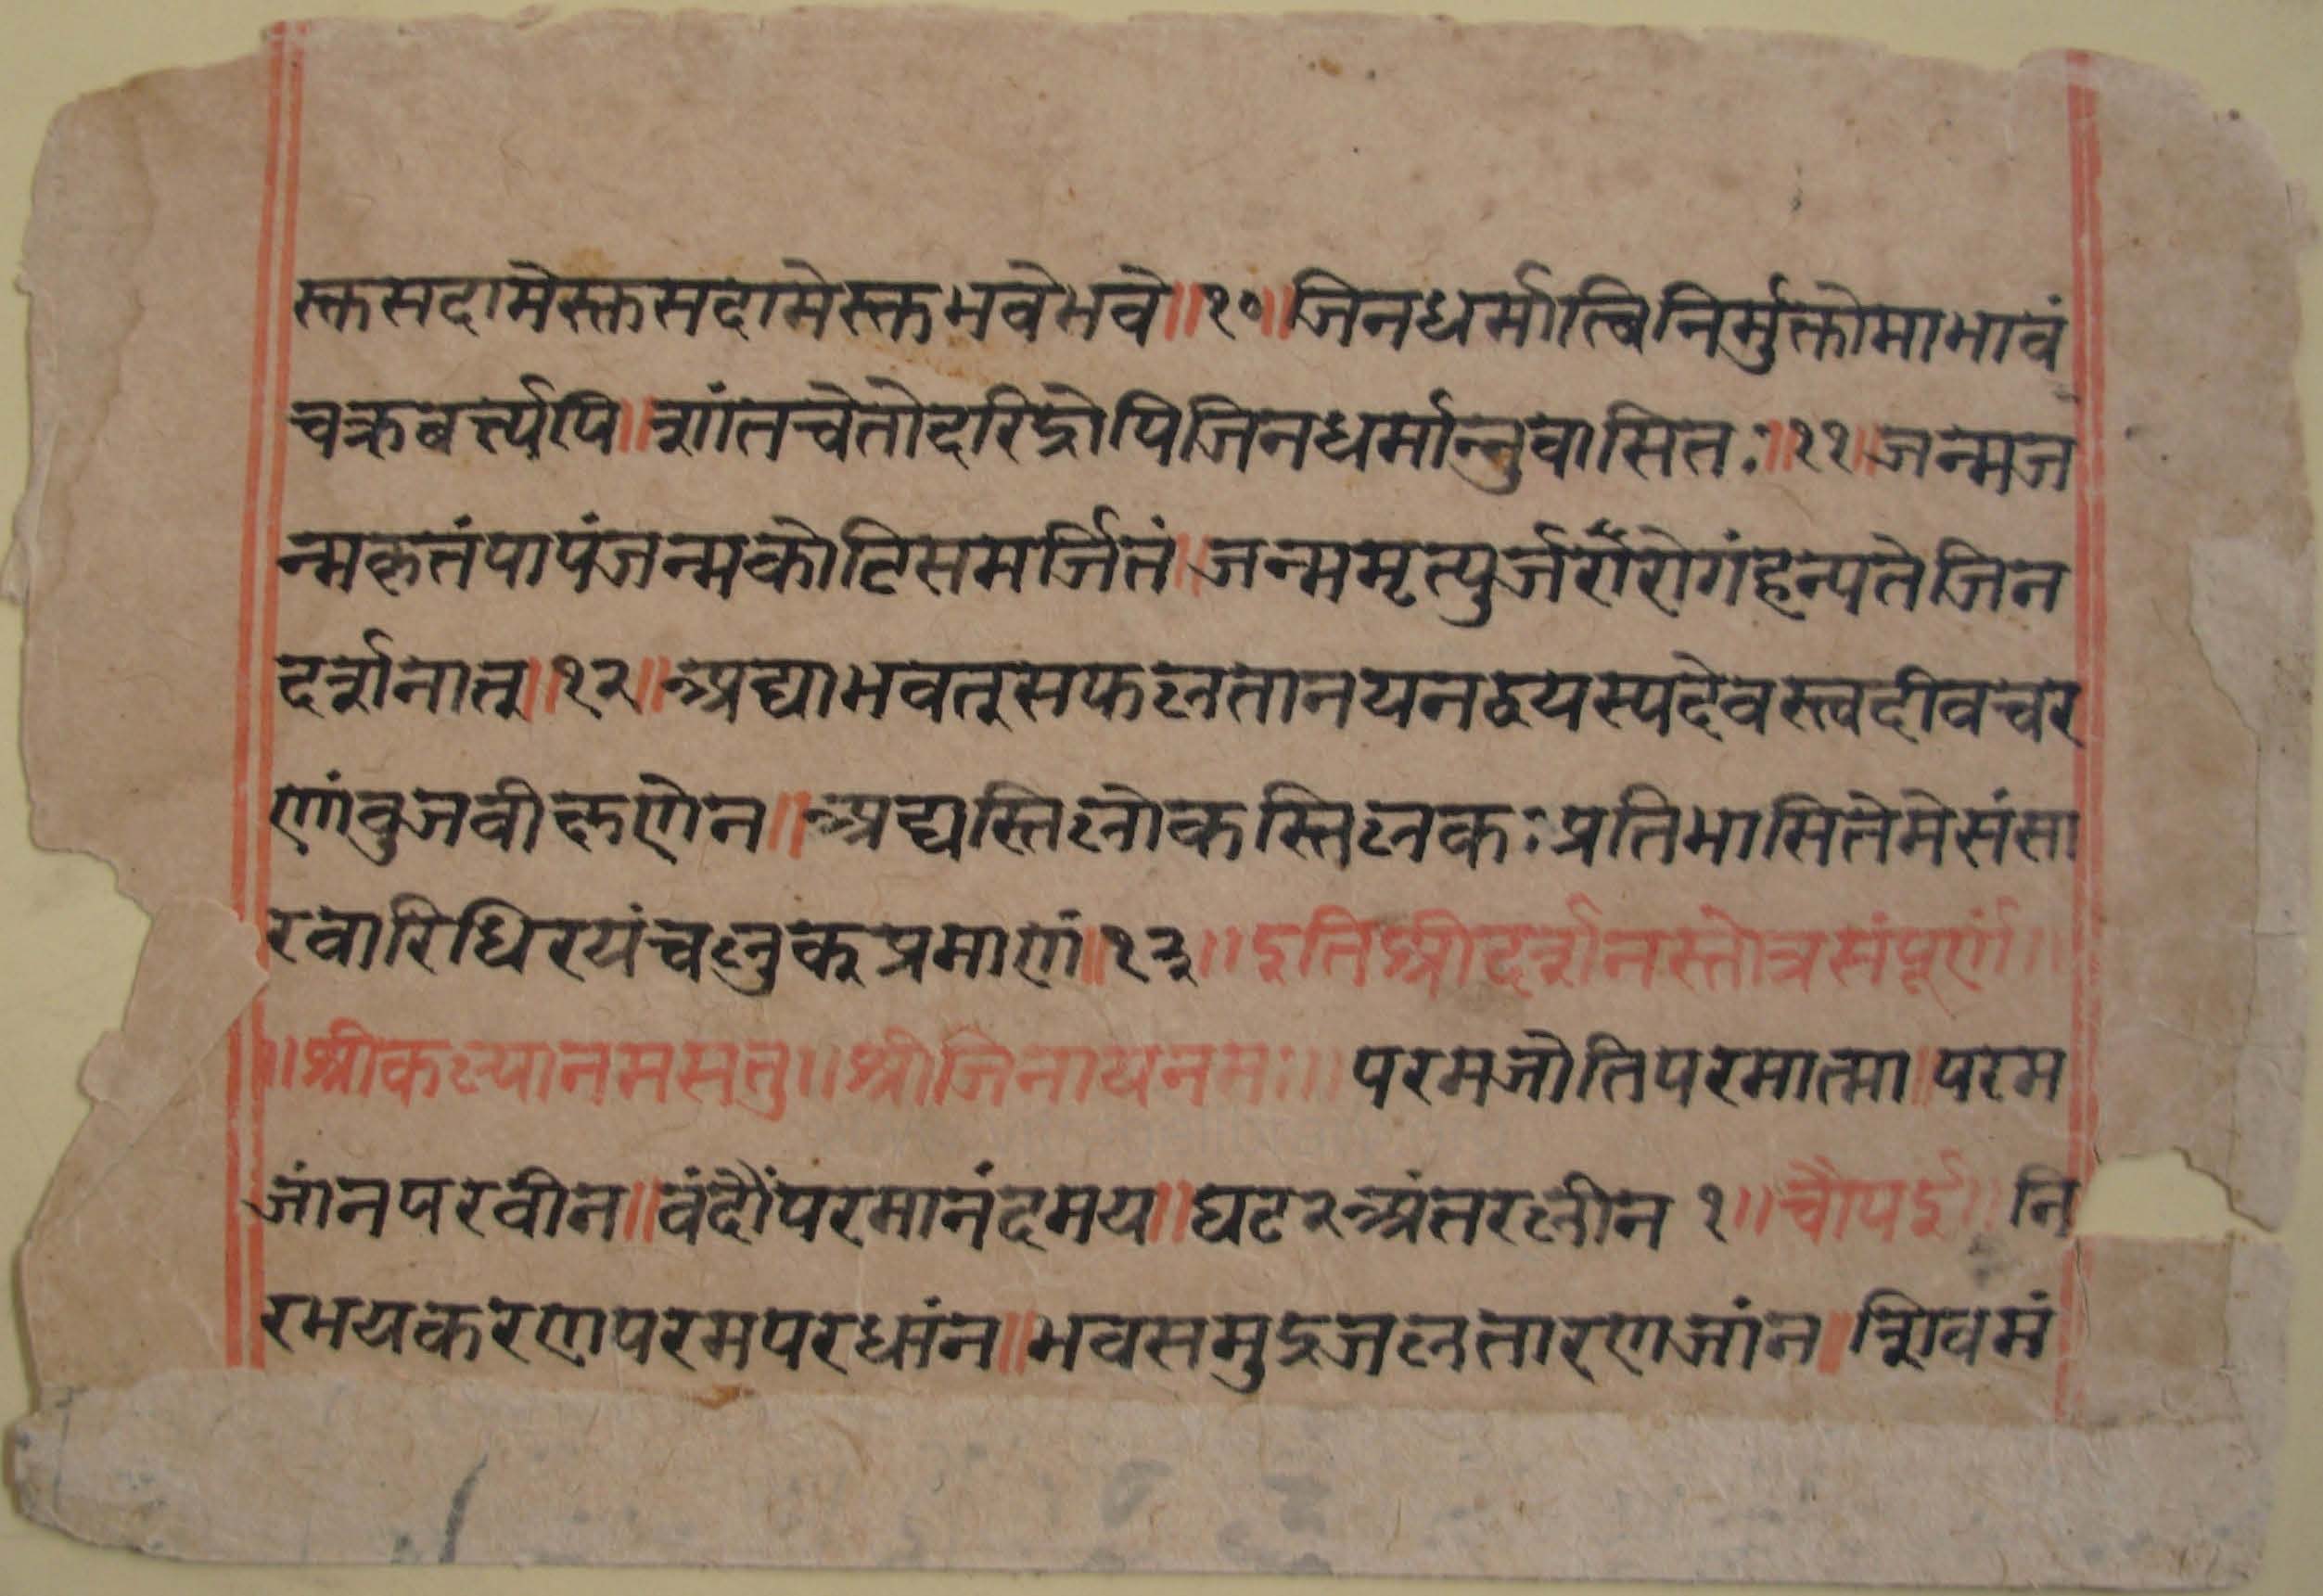 स्क्तसदामेस्क्तसदामेस्क्तभवेभवे॥१०॥जिनधर्मात्विनिर्मुक्तोमाभावं
चक्रबर्त्त्यपि॥शांतचेतोदरिद्रोपिजिनधर्मान्नुवासितः॥११॥जन्मज
न्मकृतंपापंजन्मकोटिसमर्जितं॥जन्ममृत्युर्जरारोगंहन्यतेजिन
दर्शनात्॥१२॥अद्याभवत्सफलतानयनद्वयस्यदेवस्त्वदीवचर
णांवुजवीक्षणेन॥अद्यस्तिलोकस्तिलकःप्रतिभासितेमेसंसा
रवारिधिरयंचलुकप्रमाणं॥१३॥इतिश्रीदर्शनस्तोत्रसंपूर्णं॥
॥श्रीकल्यानमसतु॥श्रीजिनायनमः॥परमजोतिपरमात्मा॥परम
ज्ञांनपरवीन॥वंदौंपरमानंदमय॥घट२अंतरलीन१॥चौपई॥नि
रभयकरणपरमपरधांन॥भवसमुद्रजलतारणजांन॥शिवमं